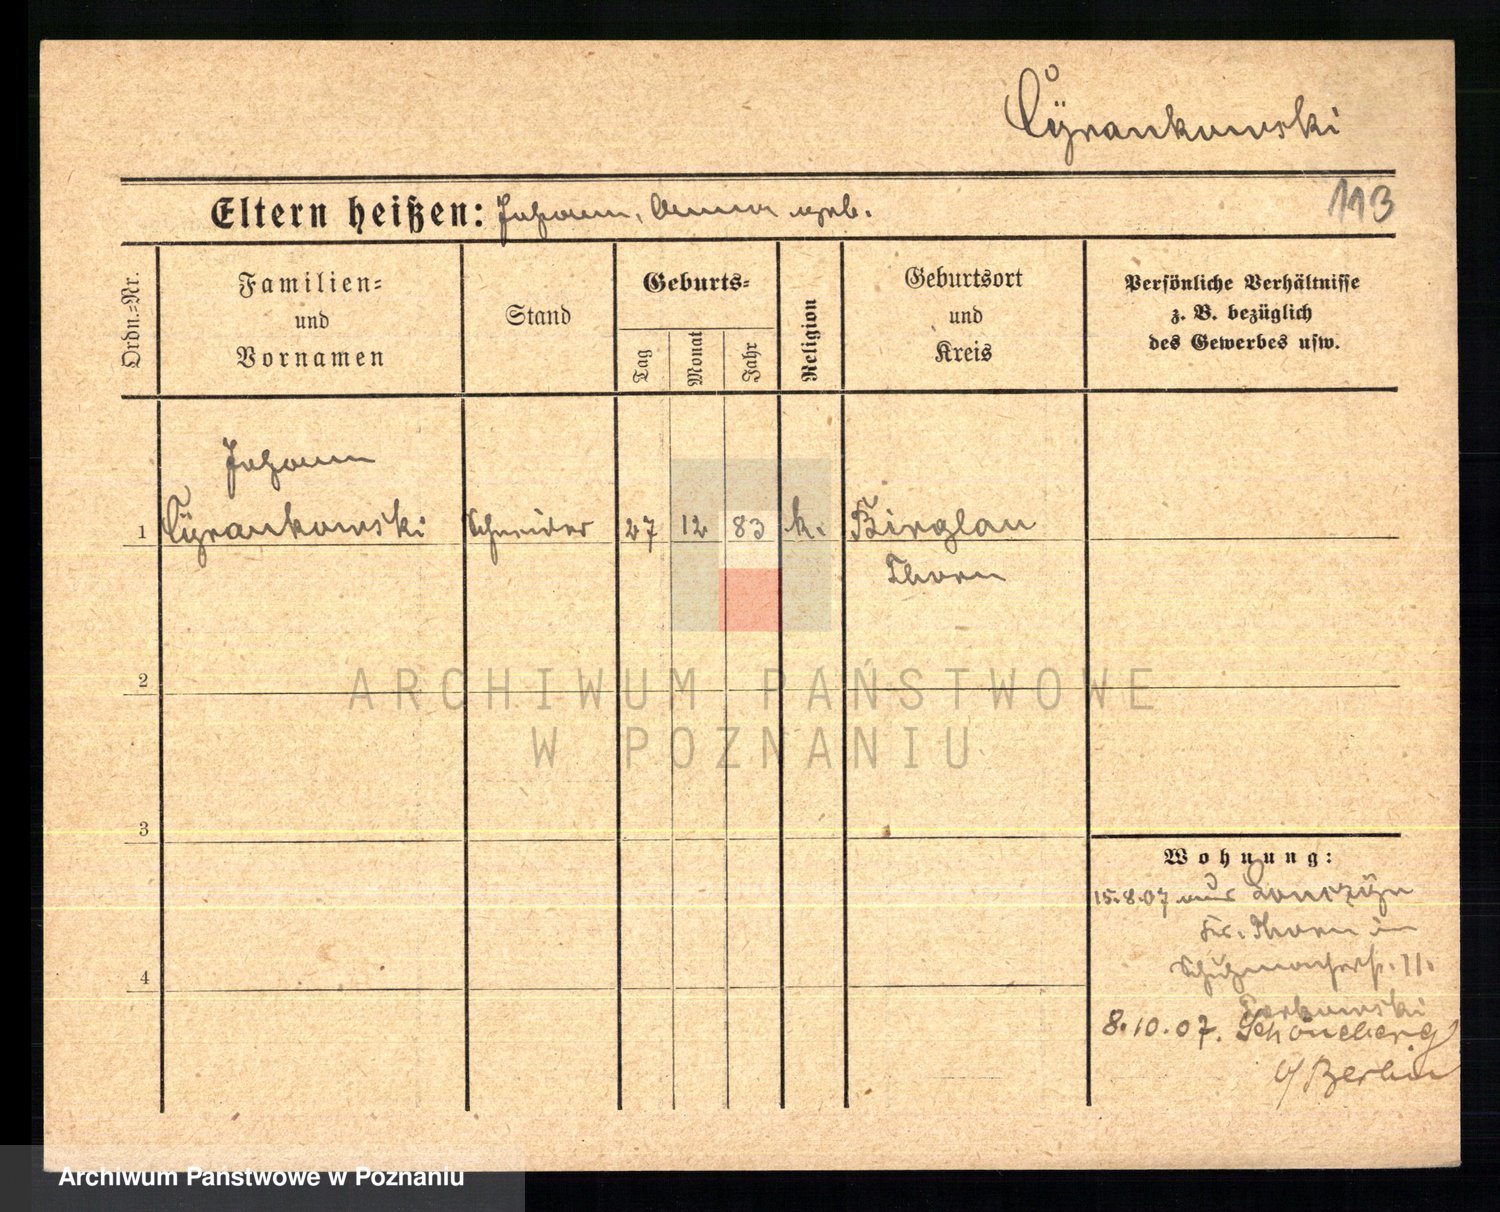 Cÿrankowski
113
Eltern heißen: Johann, Anna geb.
Ordn.=Nr.
Familien=
und
Vornamen
Stand
Geburts=
Tag
Monat
Jahr
Religion
Geburtsort
und
Kreis
Persönliche Verhältnisse
z. B. bezüglich
des Gewerbes usw.
Johann
1 Cÿrankowski Schneider 27 12 83 k. Birglau
Thorn
2
3
4
Wohnung:
15.8.07 aus Lonczÿn
Kr. Thorn in
Schuhmacherstr. 11.
8.10.07. Schöneberg
b/Berlin
ARCHIWUM PAŃSTWOWE
W POZNANIU
Archiwum Państwowe w Poznaniu